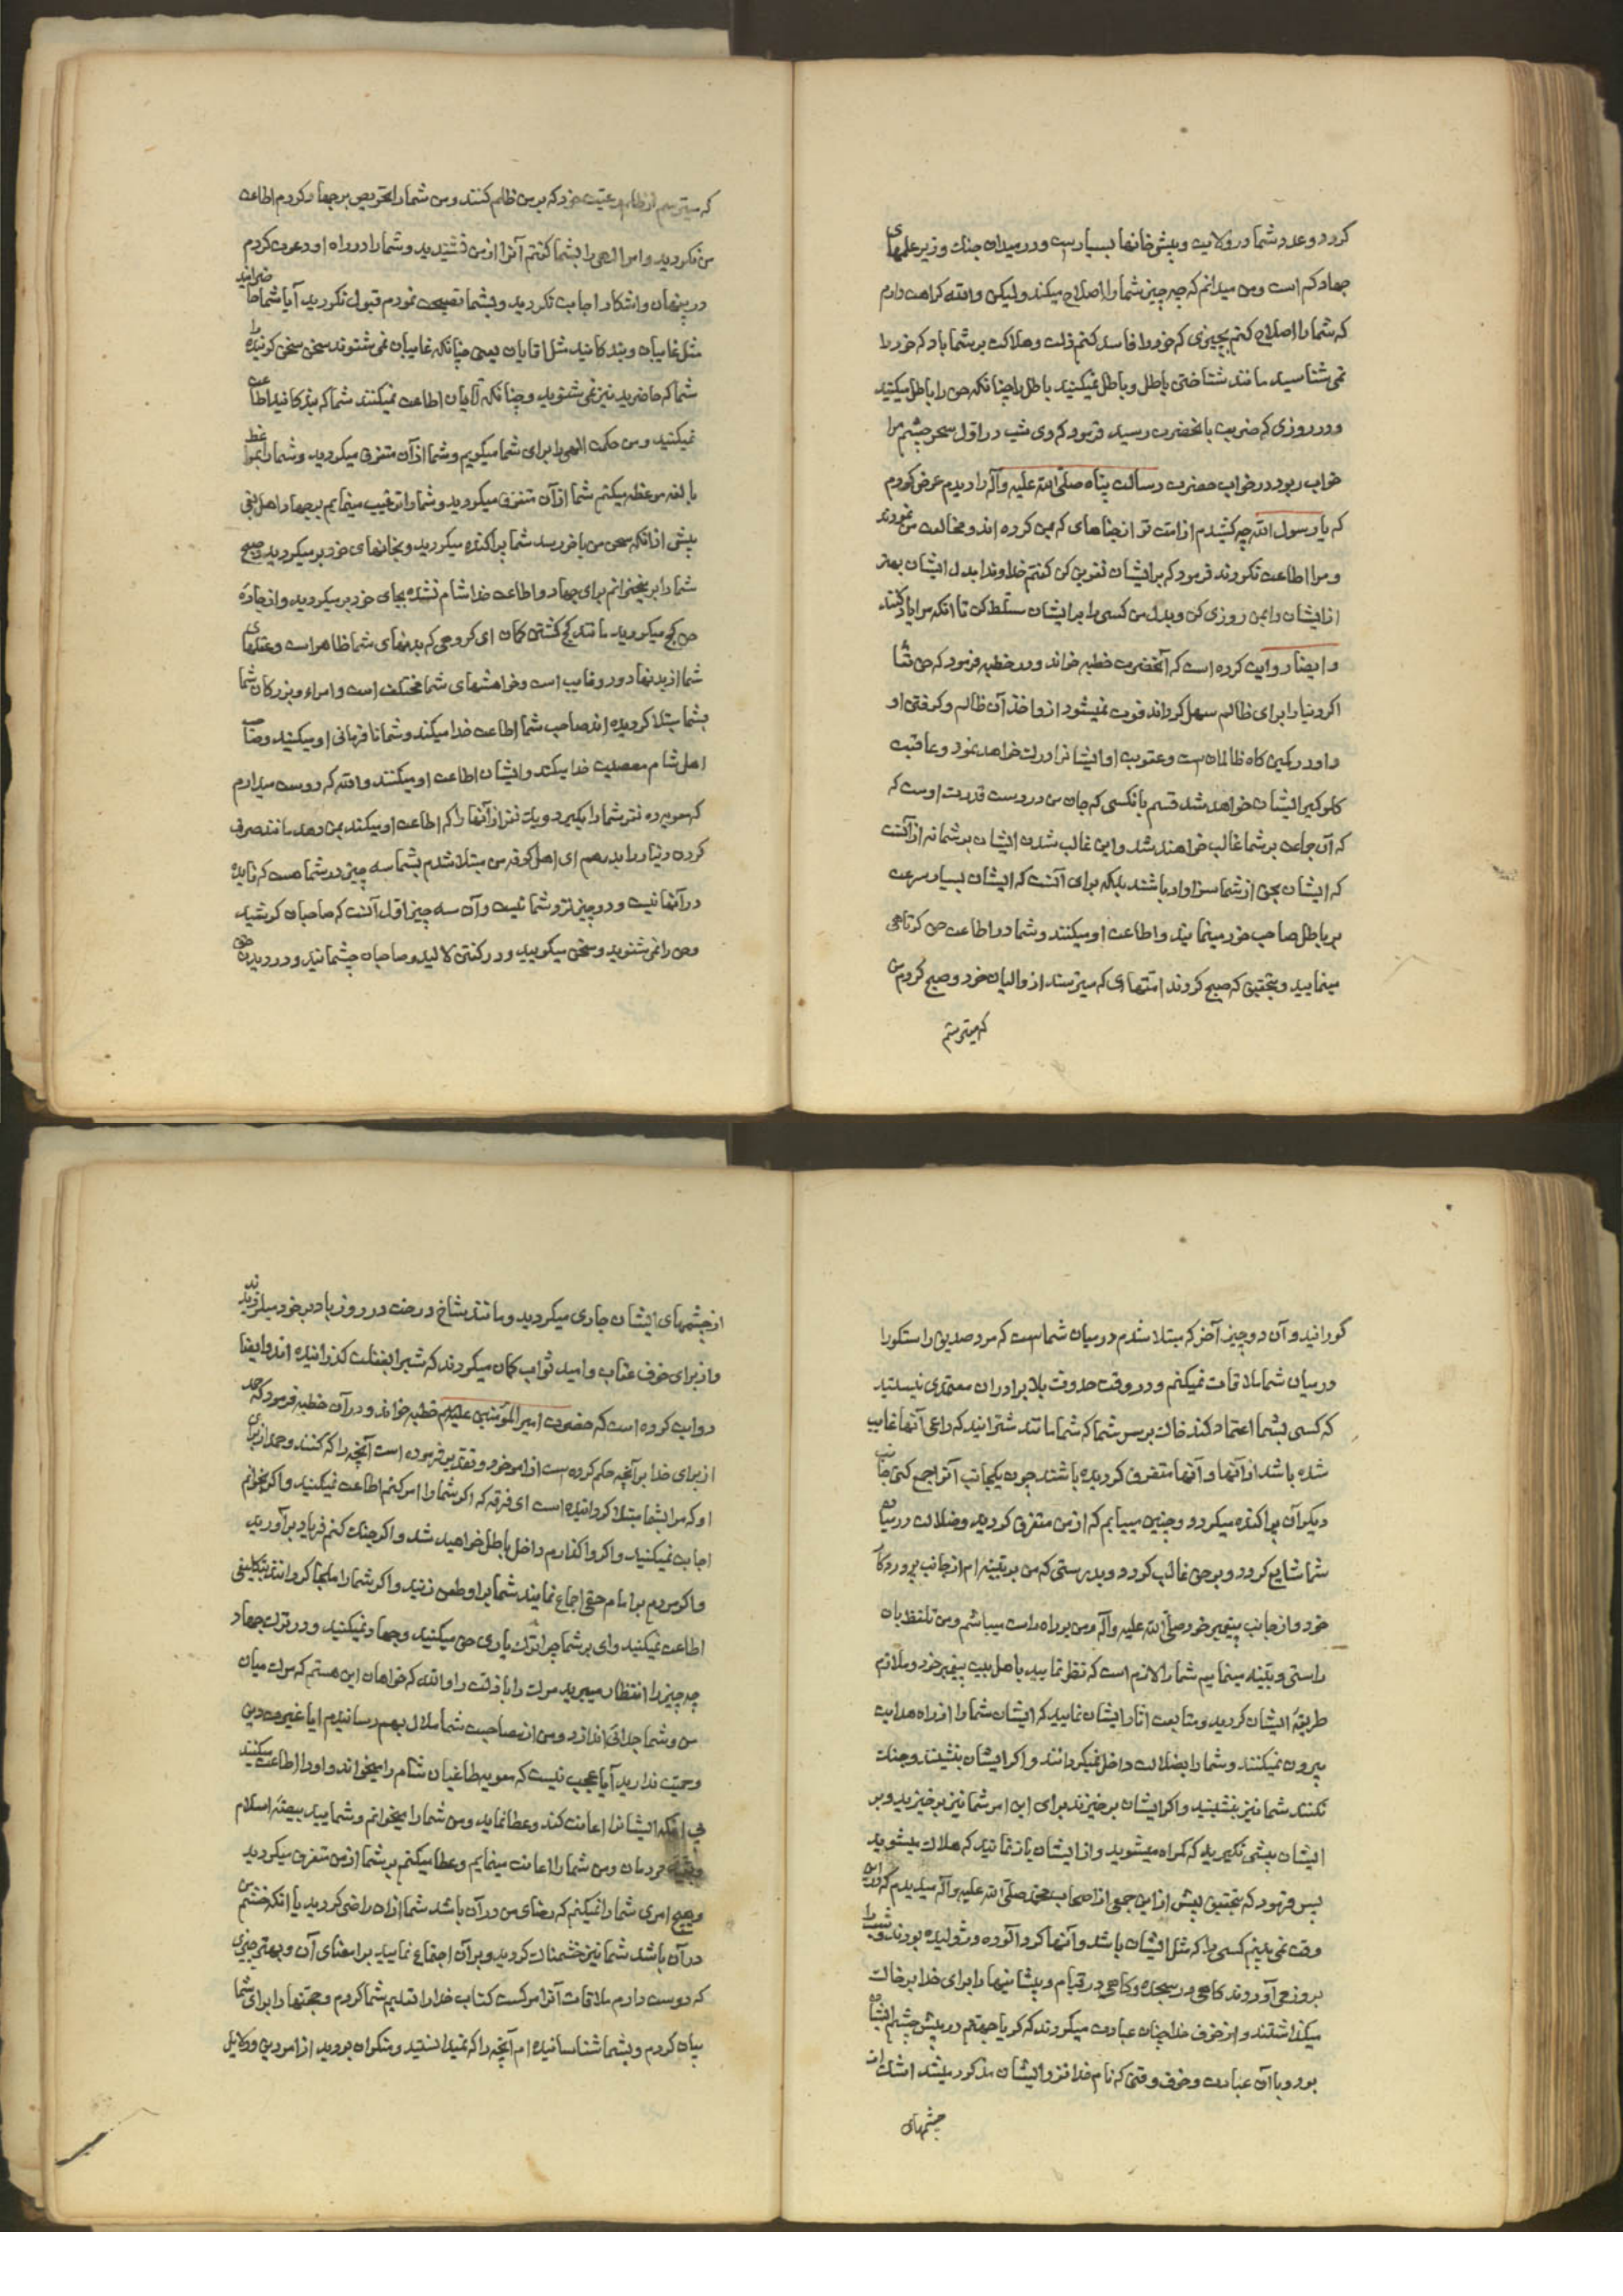 کردد و عدد شما در ولایت و پیش خانها بسیارست و در میدان جنك و زیر علمهای
جهاد کم است و من میدانم که چه چیز شما را اصلاح میکند ولیکن والله کراهت دارم
که شما را اصلاح کنم بچیزی که خود را فاسد کنم ذلت و هلاکت بر شما باد که خود را
نمی شناسید مانند شناختن باطل و باطل نمیکنید باطل را چنانکه حق را باطل میکنید
و در روزی که ضربت بانحضرت رسید فرمود که دی شب در اول سحر چشم مرا
خواب ربود در خواب حضرت رسالت پناه صلی الله علیه وآله را دیدم عرض کردم
که یا رسول الله چه کشیدم از امت تو از جفاهای که بمن کرده اند و مخالفت من نمودند
و مرا اطاعت نکردند فرمود که بر ایشان نفرین کن کفتم خداوندا بدل ایشان بهتر
از ایشان را بمن روزی کن و بدل من کسی را بر ایشان مسلط کن تا انکه مرا یاد کنند
و ایضا روایت کرده است که آنحضرت خطبه خواند و در خطبه فرمود که حق تعا
اکر دنیا را برای ظالم سهل کرداند فوت نمیشود از او اخذ آن ظالم و کرفتن او
و او در کمین کاه ظالمان ست و عقوبت او ایشان را درك خواهد نمود و عاقبت
کلوکیر ایشان خواهد شد قسم بانکسی که جان من در دست قدرت اوست که
که آن جماعت بر شما غالب خواهند شد و این غالب شدن ایشان بر شما نه از آنست
که ایشان بحق از شما سزاوار باشند بلکه برای آنست که ایشان بسیار سرعت
بر باطل صاحب خود مینمایند و اطاعت او میکنند و شما در اطاعت حق کوتاهی
مینمایید و بتحقیق که صبح کردند امتهای که میترسند از والیان خود و صبح کردم من
که میترسم
که میترسم از ظلم رعیت خود که بر من ظلم کنند و من شما را تحریص بر جهاد کردم اطاعت
من نکردید و امر الهی را بشما کفتم آنرا از من نشنیدید و شما را در راه او دعوت کردم
در پنهان و اشکار اجابت نکردید و بشما نصیحت نمودم قبول نکردید آیا شما حاضرانید
مثل غایبان و بندکانید مثل اقایان یعنی چنانکه غایبان نمی شنوند سخن سخن کوینده را
شما که حاضرید نیز نمی شنوید و چنانکه آقایان اطاعت نمیکنند شما که بندکانید اطاعت
نمیکنید و من حکمت الهی را برای شما میکویم و شما از آن متفرق میکردید و شما را بموا
عظ
بالغه موعظه میکنم شما از آن متفرق میکردید و شما را ترغیب مینمایم بجهاد اهل بغی
پیش از انکه سخن من باخر رسد شما پراکنده میکردید و بخانهای خود بر میکردید و صبح
شما را بر میخیزانم برای جهاد و اطاعت خدا شام نشده بجای خود بر میکردید و از جاده
حق کج میکردید مانند کج کشتن کمان ای کروهی که بدنهای شما ظاهر است و عقلهای
شما از بدنها دور و غایب است و خواهشهای شما مختلف است و امراء و بزرکان شما
بشما مبتلا کردیده اند صاحب شما اطاعت خدا میکند و شما نا فرمانی او میکنید و صاحب
اهل شام معصیت خدا میکند و ایشان اطاعت او میکنند والله که دوست میدارم
که معویه ده نفر شما را بکیرد و یك نفر از آنها را که اطاعت او میکند بمن دهد مانند صرف
کردن دینار را بدرهم ای اهل کوفه من مبتلا شدم بشما سه چیز در شما هست که فایده
در آنها نیست و دو چیز نزد شما نیست و آن سه چیز اول آنست که صاحبان کوشید
و حق را نمی شنوید و سخن میکویید و در کفتن لالید و صاحبان چشمانید و در دیدن حق
کورانید و آن دو چیز آخر که مبتلا شدم در میان شما ست که مرد صدیق راستکو را
در میان شما ملاقات نمیکنم و در وقت حدوث بلا برادران معتمدی نیستید
که کسی بشما اعتماد کند خاك بر سر شما که شما مانند شترانید که راعی آنها غایب
شده باشد از آنها و آنها متفرق کردیده باشند چون یکجانب آنرا جمع کنی جانب
دیکر آن پراکنده میکردد و چنین میبیایم که از من متفرق کردید و ضلالت در میان
شما شایع کردد و بر حق غالب کردد و بدرستی که من بر بینه ام از جانب پروردکار
خود و از جانب پیغمبر خود صلی الله علیه وآله و من بر راه راست میباشم و من تلفظ بان
راستی و بینه مینمایم شما را لازم است که نظر نمایید باهل بیت پیغمبر خود و ملازم
طریقه ایشان کردید و متابعت اثار ایشان نمایید که ایشان شما را از راه هدایت
بیرون نمیکنند و شما را بضلالت داخل نمیکردانند و اکر ایشان بنشینند و جنك
نکنند شما نیز بنشینید و اکر ایشان برخیزند برای این امر شما نیز برخیزید و بر
ایشان پیشی نکیرید که کمراه میشوید و از ایشان باز نمانید که هلاك میشوید
پس فرمود که بتحقیق پیش از این جمعی از اصحاب محمد صلی الله علیه وآله میدیدم که در این
وقت نمی بینم کسی را که مثل ایشان باشد و آنها کرد آلوده و ژولیده بودند و شب را
بروز می آوردند کاهی در سجده و کاهی در قیام و پیشانیها را برای خدا بر خاك
میکذاشتند و از خوف خدا چنان عبادت میکردند که کویا جهنم در پیش چشم ایشان
بود و با آن عبادت و خوف وقتی که نام خدا نزد ایشان مذکور میشد اشك از
چشمهای
از چشمهای ایشان جاری میکردید و مانند شاخ درخت در روز باد بر خود میلرزیدند
و از برای خوف عقاب و امید ثواب کمان میکردند که شب را بغفلت کذرانیده اند و ایضا
روایت کرده است که حضرت امیر المؤمنین علیه السلام خطبه خواند و در آن خطبه فرمود که حمد
از برای خدا بر آنچه حکم کرده ست از امر خود و تقدیر فرموده است آنچه را که کنند و حمد از برای
او که مرا بشما مبتلا کردانیده است ای فرقه که اکر شما را امر کنم اطاعت نمیکنید و اکر بخوانم
اجابت نمیکنید و اکر واکذارم داخل باطل خواهید شد و اکر جنك کنم فریاد بر آورید
و اکر مردم بر امام حق اجماع نمایند شما بر او طعن زنید و اکر شما را ملجا کردانند بتکلیفی
اطاعت نمیکنید وای بر شما چرا ترك یاری حق میکنید و جهاد نمیکنید و در ترك جهاد
چه چیز را انتظار میبرید مرك را یا ذلت را والله که خواهان این هستم که مرك میان
من و شما جدائی اندازد و من از مصاحبت شما ملال بهم رسانیدم ایا غیرت دین
و حمیت ندارید آیا عجب نیست که معویه طاغیان شام را میخواند و او را اطاعت میکنند
بی انکه ایشانرا اعانت کند و عطا نماید و من شما را میخوانم و شمایید بیضه اسلام
و بقیه مردمان و من شما را اعانت مینمایم و عطا میکنم بر شما از من متفرق میکردید
و هیچ امری شما را نمیکنم که رضای من در آن باشد شما از ان راضی کردید یا انکه خشم من
در آن باشد شما نیز خشمناك کردید و بر آن اجتماع نمایید بر امضای آن و بهترین چیزی
که دوست دارم ملاقات آنرا مرکست کتاب خدا را تعلیم شما کردم و حجتها را برای شما
بیان کردم و بشما شناسانیده ام آنچه را که نمیدانستید و منکران بودید از امر دین و دلایل